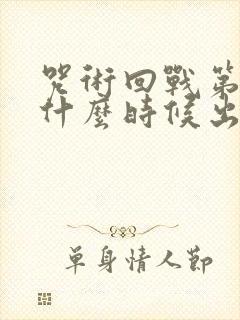 咒術回戰第
什麼時候出
單身情人節